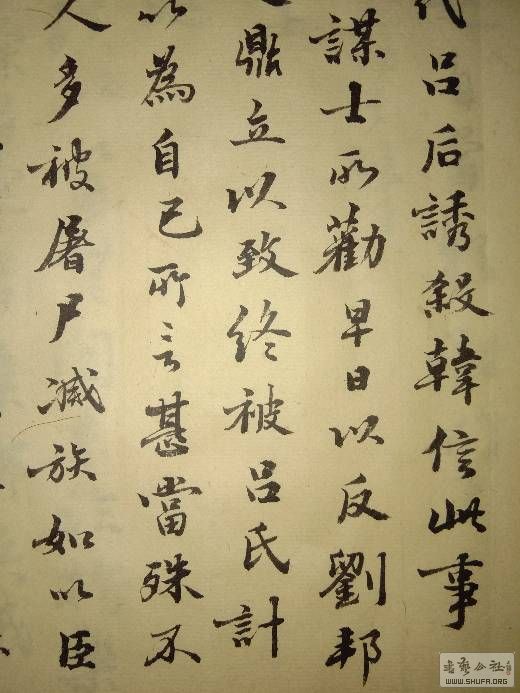 代吕后誘殺韓信此事
謀士所勸早日以反劉邦
鼎立以致終被吕氏計
以為自己所言甚當殊不
人多被屠尸滅族如以臣
书艺公社
WWW.SHUFA.ORG